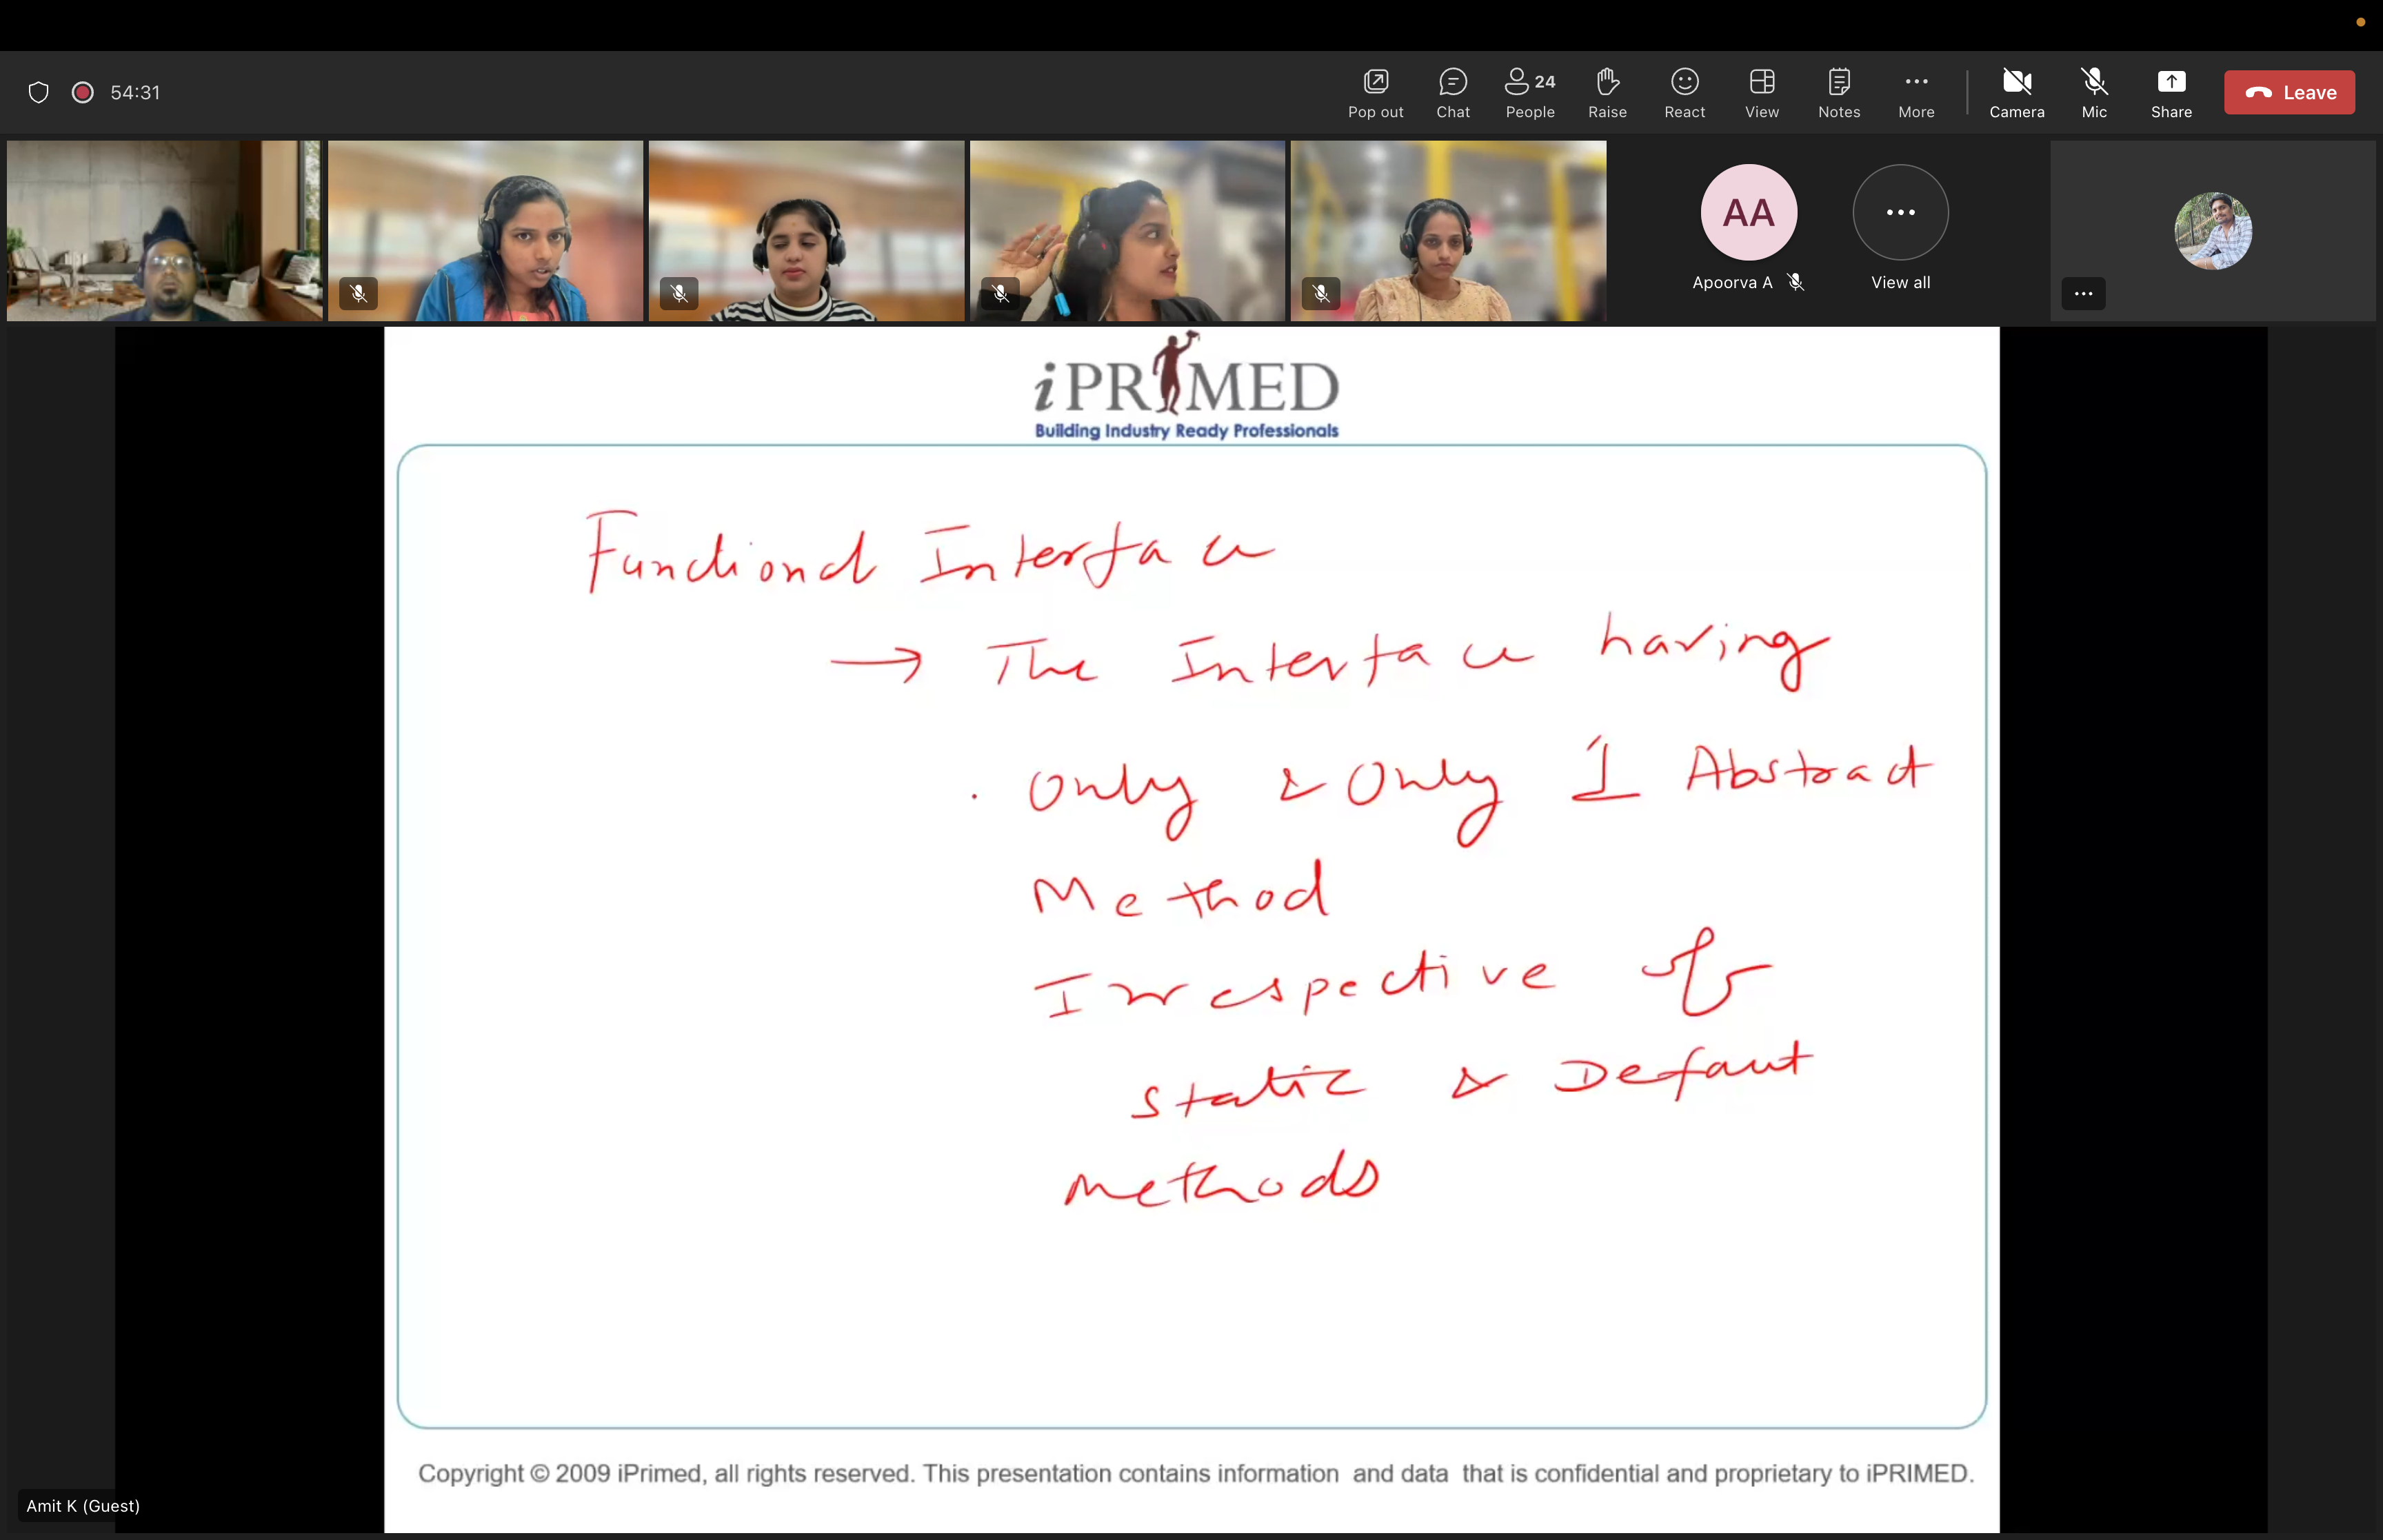 54:31
Pop out
Chat
24
People
Raise
React
View
Notes
More
Camera
Mic
Share
Leave
AA
Apoorva A
View all
iPRIMED
Building Industry Ready Professionals
Functional Interface
→ The Interface having
. Only & Only 1 Abstract
Method
Irrespective of
static & Default
methods
Copyright © 2009 iPrimed, all rights reserved. This presentation contains information and data that is confidential and proprietary to iPRIMED.
Amit K (Guest)